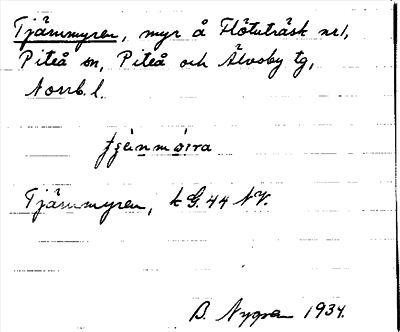 Tjärnmyren, myr å Flötuträsk nr1,
Piteå sn, Piteå och Älvsby tg,
Norrb. l.
Tjärnmyren, k G. 44 NV.
B. Nygren 1934.